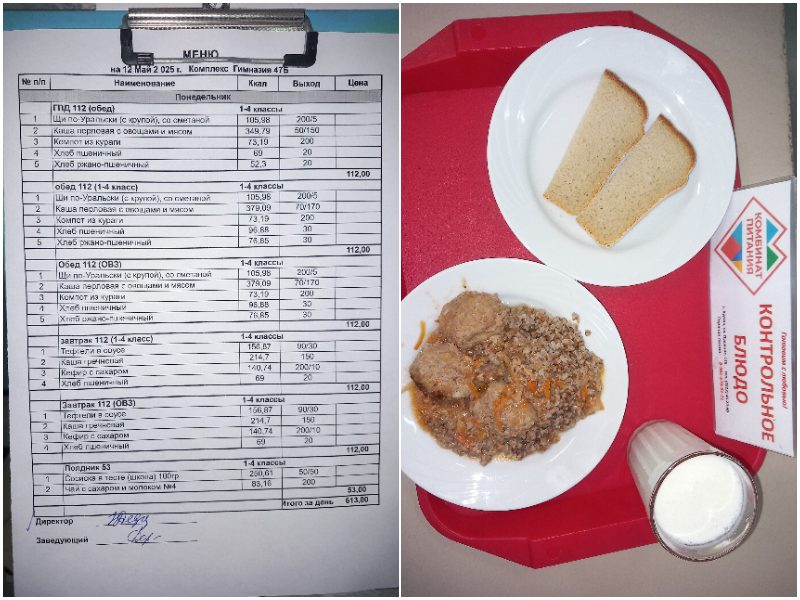 МЕНЮ
на 12 Май 2 025 г. Комплекс Гимназия 47Б
№ п/п Наименование Ккал Выход Цена
Понедельник
ГПД 112 (обед) 1-4 классы
1 Щи по-Уральски (с крупой), со сметаной 105,98 200/5
2 Каша перловая с овощами и мясом 349,79 50/150
3 Компот из кураги 73,19 200
4 Хлеб пшеничный 69 20
5 Хлеб ржано-пшеничный 52,3 20
112,00
обед 112 (1-4 класс) 1-4 классы
1 Щи по-Уральски (с крупой), со сметаной 105,98 200/5
2 Каша перловая с овощами и мясом 379,09 70/170
3 Компот из кураги 73,19 200
4 Хлеб пшеничный 96,88 30
5 Хлеб ржано-пшеничный 76,85 30
112,00
Обед 112 (ОВЗ) 1-4 классы
1 Щи по-Уральски (с крупой), со сметаной 105,98 200/5
2 Каша перловая с овощами и мясом 379,09 70/170
3 Компот из кураги 73,19 200
4 Хлеб пшеничный 96,88 30
5 Хлеб ржано-пшеничный 76,85 30
112,00
завтрак 112 (1-4 класс) 1-4 классы
1 Тефтели в соусе 156,87 90/30
2 Каша гречневая 214,7 150
3 Кефир с сахаром 140,74 200/10
4 Хлеб пшеничный 69 20
112,00
Завтрак 112 (ОВЗ) 1-4 классы
1 Тефтели в соусе 156,87 90/30
2 Каша гречневая 214,7 150
3 Кефир с сахаром 140,74 200/10
4 Хлеб пшеничный 69 20
112,00
Полдник 53 1-4 классы
1 Сосиска в тесте (школа) 100гр 250,61 50/50
2 Чай с сахаром и молоком №4 83,16 200
53,00
Итого за день 613,00
Директор
Заведующий
КОМБИНАТ
ПИТАНИЯ
Готовим с любовью!
КОНТРОЛЬНОЕ
БЛЮДО